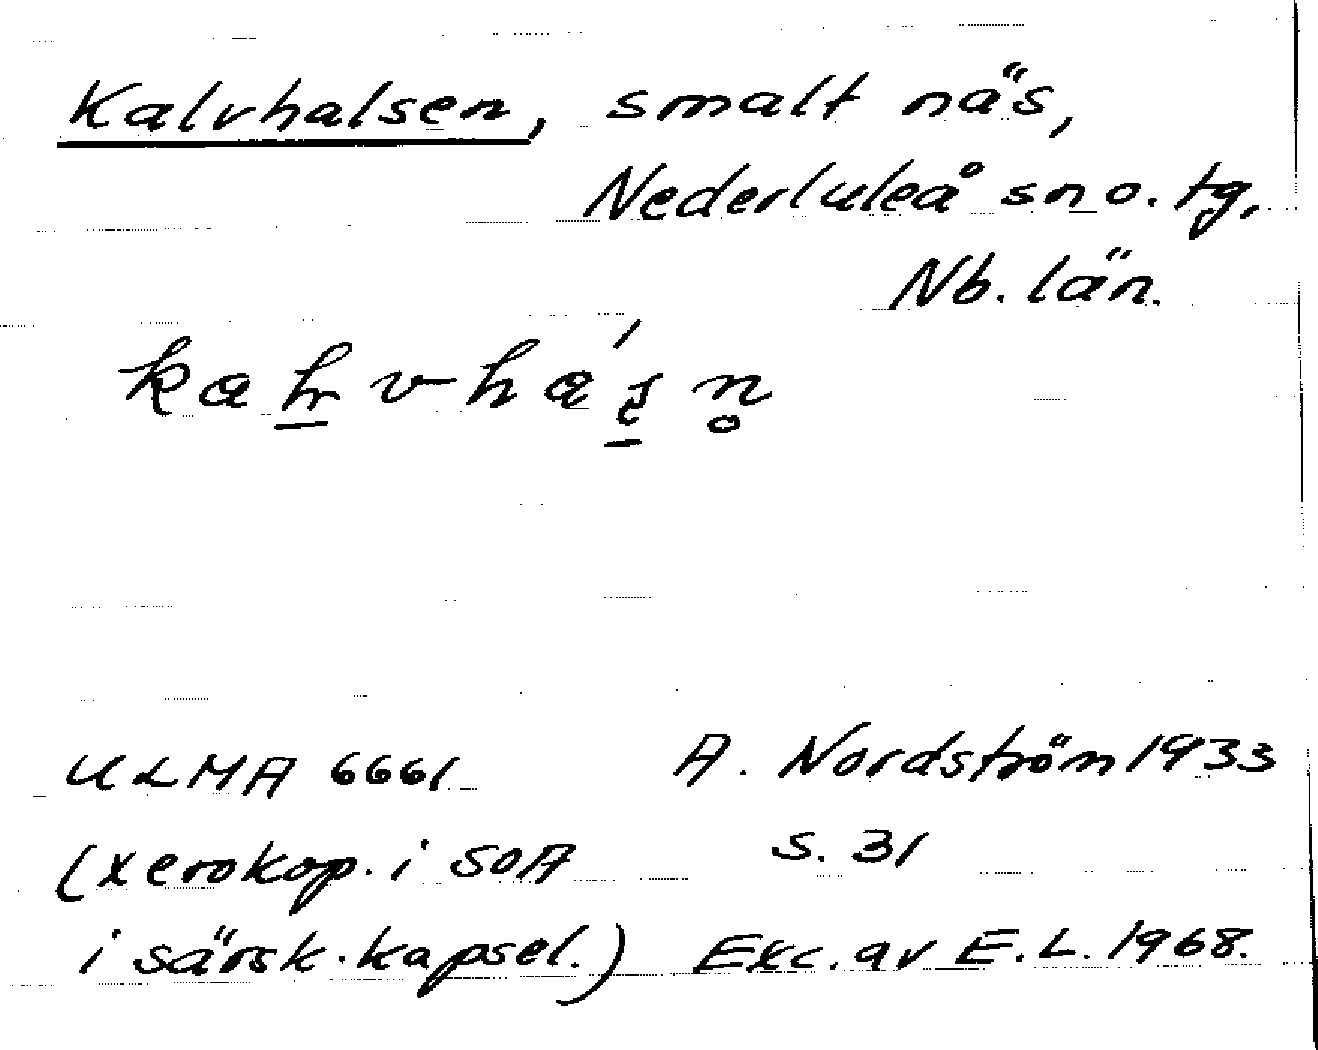 Kalvhalsen, smalt näs,
Nederluleå sn o. tg,
Nb. län.
ULMA 6661 A. Nordström 1933
(xerokop. i SOA s. 31
i särsk. kapsel.) Exc. av E.L. 1968.